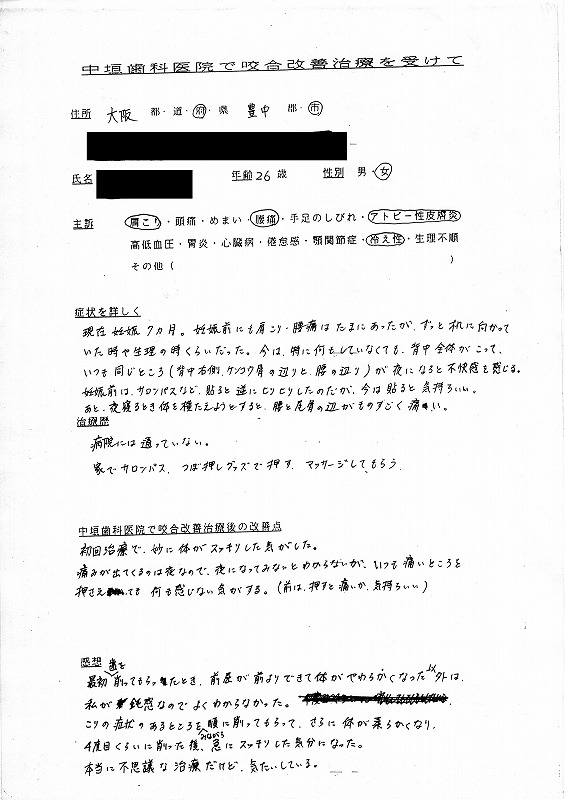 中垣歯科医院で咬合改善治療を受けて
住所 大阪 都・道・府・県 豊中 郡・市
氏名 年齢 26 歳 性別 男・女
主訴 肩こり・頭痛・めまい・腰痛・手足のしびれ・アトピー性皮膚炎
高低血圧・胃炎・心臓病・倦怠感・顎関節症・冷え性・生理不順
その他( )
症状を詳しく
現在妊娠7ヵ月。妊娠前にも肩こり・腰痛はたまにあったが、ずっと机に向かって
いた時や生理の時くらいだった。今は、特に何もしていなくても、背中全体がこって、
いつも同じところ(背中右側、ケンコウ骨の辺りと、腰の辺り)が夜になると不快感を感じる。
妊娠前は、サロンパスなど、貼ると逆にヒリヒリしたのだが、今は貼ると気持ちいい。
あと、夜寝るとき体を横たえようとすると、腰と尾骨の辺がものすごく痛い。
治療歴
病院には通っていない。
家でサロンパス、つぼ押しグッズで押す、マッサージしてもらう。
中垣歯科医院で咬合改善治療後の改善点
初回治療で、妙に体がスッキリした気がした。
痛みが出てくるのは夜なので、夜になってみないとわからないが、いつも痛いところを
押さえても何も感じない気がする。(前は、押すと痛いが、気持ちいい)
感想
最初歯を削ってもらったとき、前屈が前よりできて体がやわらかくなった以外は、
私が鈍感なのでよくわからなかった。
こりの症状のあるところを順に削ってもらって、さらに体が柔らかくなり、
4度目くらいに削った後、急にスッキリした気分になった。
本当に不思議な治療だけど、